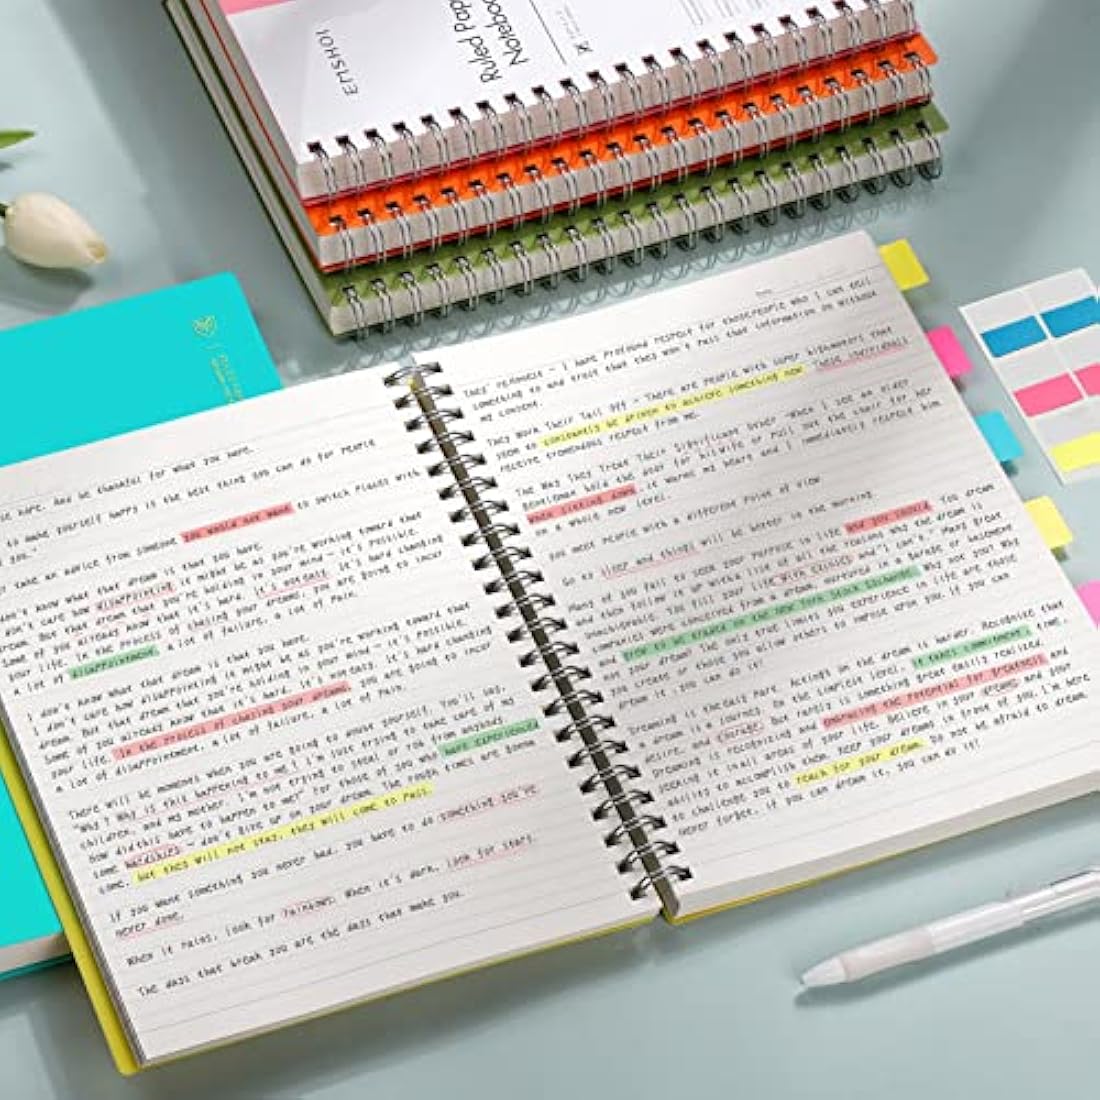 EMSHOI
Ruled Paper
Notebook
And be thankful for what you have.
make yourself happy is the best thing you can do for people
you."
Take an advice from someone you would not want to switch places with
don't know what that dream is that you have.
don't care how disappointing it might be as you're working toward that
dream. But that dream that you're holding in your mind - it's possible.
Some of you already know it's hard. it's not easy. it's hard changing
your life. In the process of chasing your dreams, you are going to incur
a lot of disappointment, a lot of failure, a lot of pain.
I don't know what that dream is that you have.
I don't care how disappointing it might be as you're working toward that
dream. But that dream that you're holding in your mind - it's possible.
Some of you already know that it's hard. it's not easy. it's hard changing
your life. In the process of chasing your dreams, you are going to incur
a lot of disappointment, a lot of failure, a lot of pain.
There will be moments when you are going to abuse yourself. You'll say,
"Why? Why is this happening to me? I'm just trying to take care of my
children, and my mother. I'm not trying to steal or rob from anybody.
How did this have to happen to me?" For those of you who have experienced
some hardships - don't give up on your dream. The rough times are gonna
come, but they will not stay, they will come to pass.
If you want something you never had, you have to do something you've
never done.
When it rains, look for rainbows. When it's dark, look for stars.
The days that break you are the days that make you.
They response - I have profound respect for those people who I can tell
something to and trust that they won't pass that information on without
my consent.
They Work Their Tail Off - There are people with super highmotors that
seem to constantly be driven to achieve something new. These individuals
receive tremendous respect from me.
The Way They Treat Their Significant Other -When I see an older
gentleman hold the door for his wife or pull out the chair for her
when sitting down, it warms my heart and I immediately respect him
on a whole new level.
You meet people with a different point of view
Go to sleep and things will be better in the morning.
Many of you fail to seem your purpose in life and you should. You dream
and then follow it up with a list of all the reasons why the dream is
unachievable. You fill your life with cliches and"I can't." Many great
companies were conceived from a dream, nurtured in a garage or basement
and grow to be traded on the New York Stock Exchange. Why not use your
not your dream? The only true limits you experience in life are those
you create or those you allow others to impose upon you. if you can
dream it, you can do it!
Dreaming is the easy part. Acting on the dream is harder. Recognize that
a dream is a journey. On the simplest level, it takes commitment, time,
desire, and courage. But rarely is something great easily realized
Dreaming is recognizing and embracing the potential for greatness and
seeking it in all areas of your life. Believe in your dreams and your
ability to accomplish them. keep your dreams in front of you. I'm here
to challenge you to reach for your dream. Do not be afraid to dream.
Never forget, if you can dream it, you can do it!